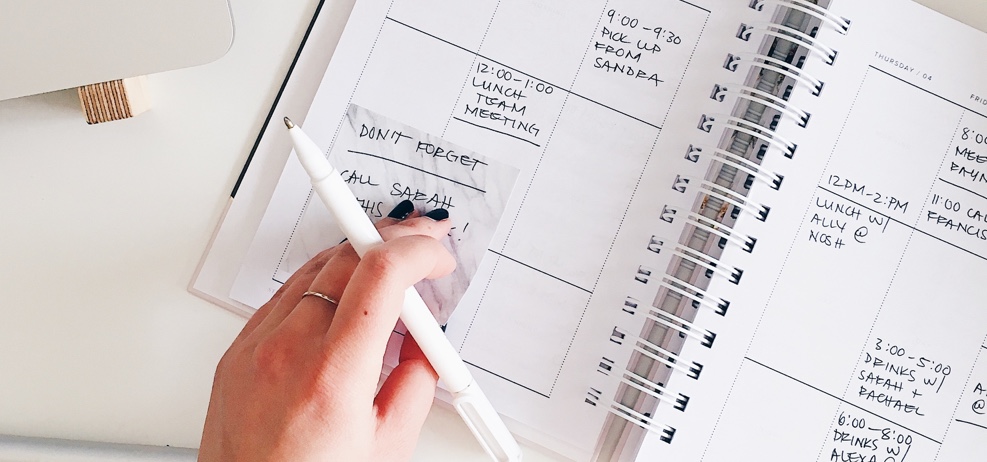 9:00-9:30
PICK UP
FROM
SANDRA
12:00-1:00
LUNCH
TEAM
MEETING
DON'T FORGET
CALL SARAH
THURSDAY / 04
12PM-2:PM
LUNCH W/
ALLY @
NOSH
3:00-5:00
DRINKS W/
SARAH +
RACHAEL
6:00-8:00
DRINKS W/
11:00